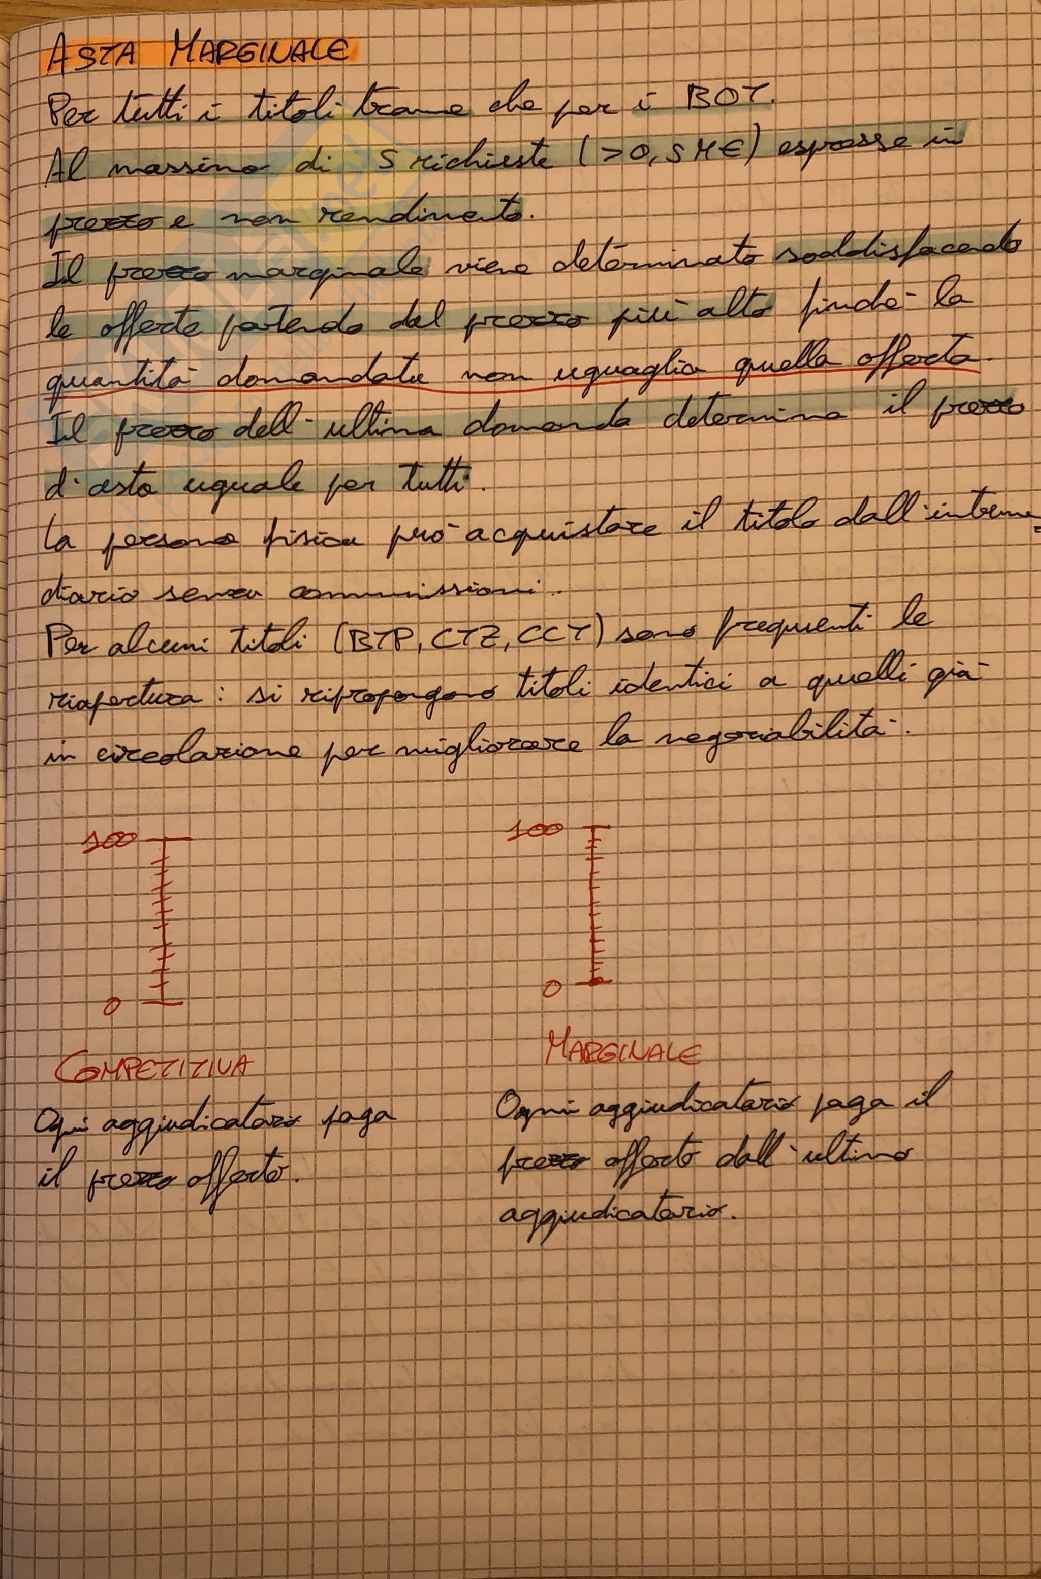 ASTA MARGINALE
Per tutti i titoli trame che per i BOT.
Al massimo di 5 richieste (>0,5 M€) espresse in
prezzo e non rendimento.
Il prezzo marginale viene determinato soddisfacendo
le offerte partendo dal prezzo più alto finché la
quantità domandata non uguaglia quella offerta.
Il prezzo dell'ultima domanda determina il prezzo
d'asta uguale per tutti.
La persona fisica può acquistare il titolo dall'interme=
diario senza commissioni.
Per alcuni titoli (BTP, CTZ, CCT) sono frequenti le
riapertura: si ripropongono titoli identici a quelli già
in circolazione per migliorare la negoziabilità.
100 100
0 0
COMPETITIVA MARGINALE
Ogni aggiudicatario paga Ogni aggiudicatario paga il
il prezzo offerto. prezzo offerto dall'ultimo
aggiudicatario.